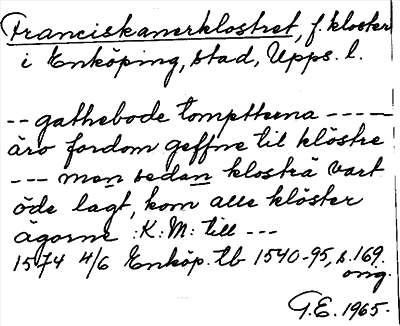 Franciskanerklostret, f. kloster
i Enköping, stad, Upps. l.
-- gathebode tomptterna -----
äro fordom geffne til klöstre
--- men sedan klosträ vart
öde lagt, kom alle klöster
ägorne :K: M: till ---
1574 4/6 Enköp. tb 1540-95, s. 169.
orig.
G.E. 1965.